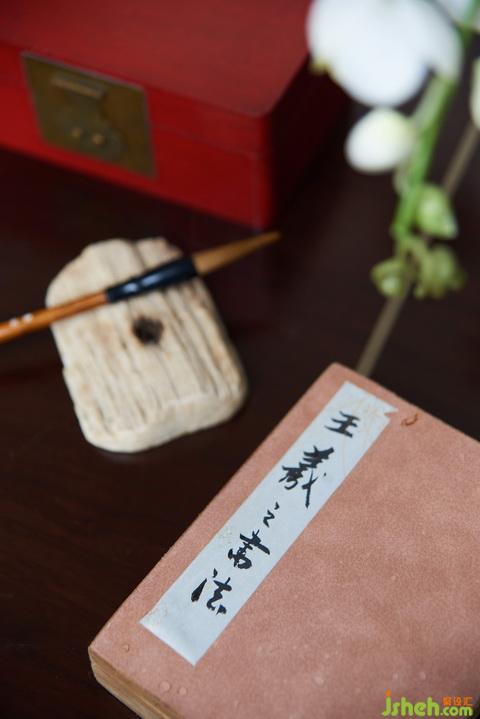 王羲之書法
爱设汇
jsheh.com